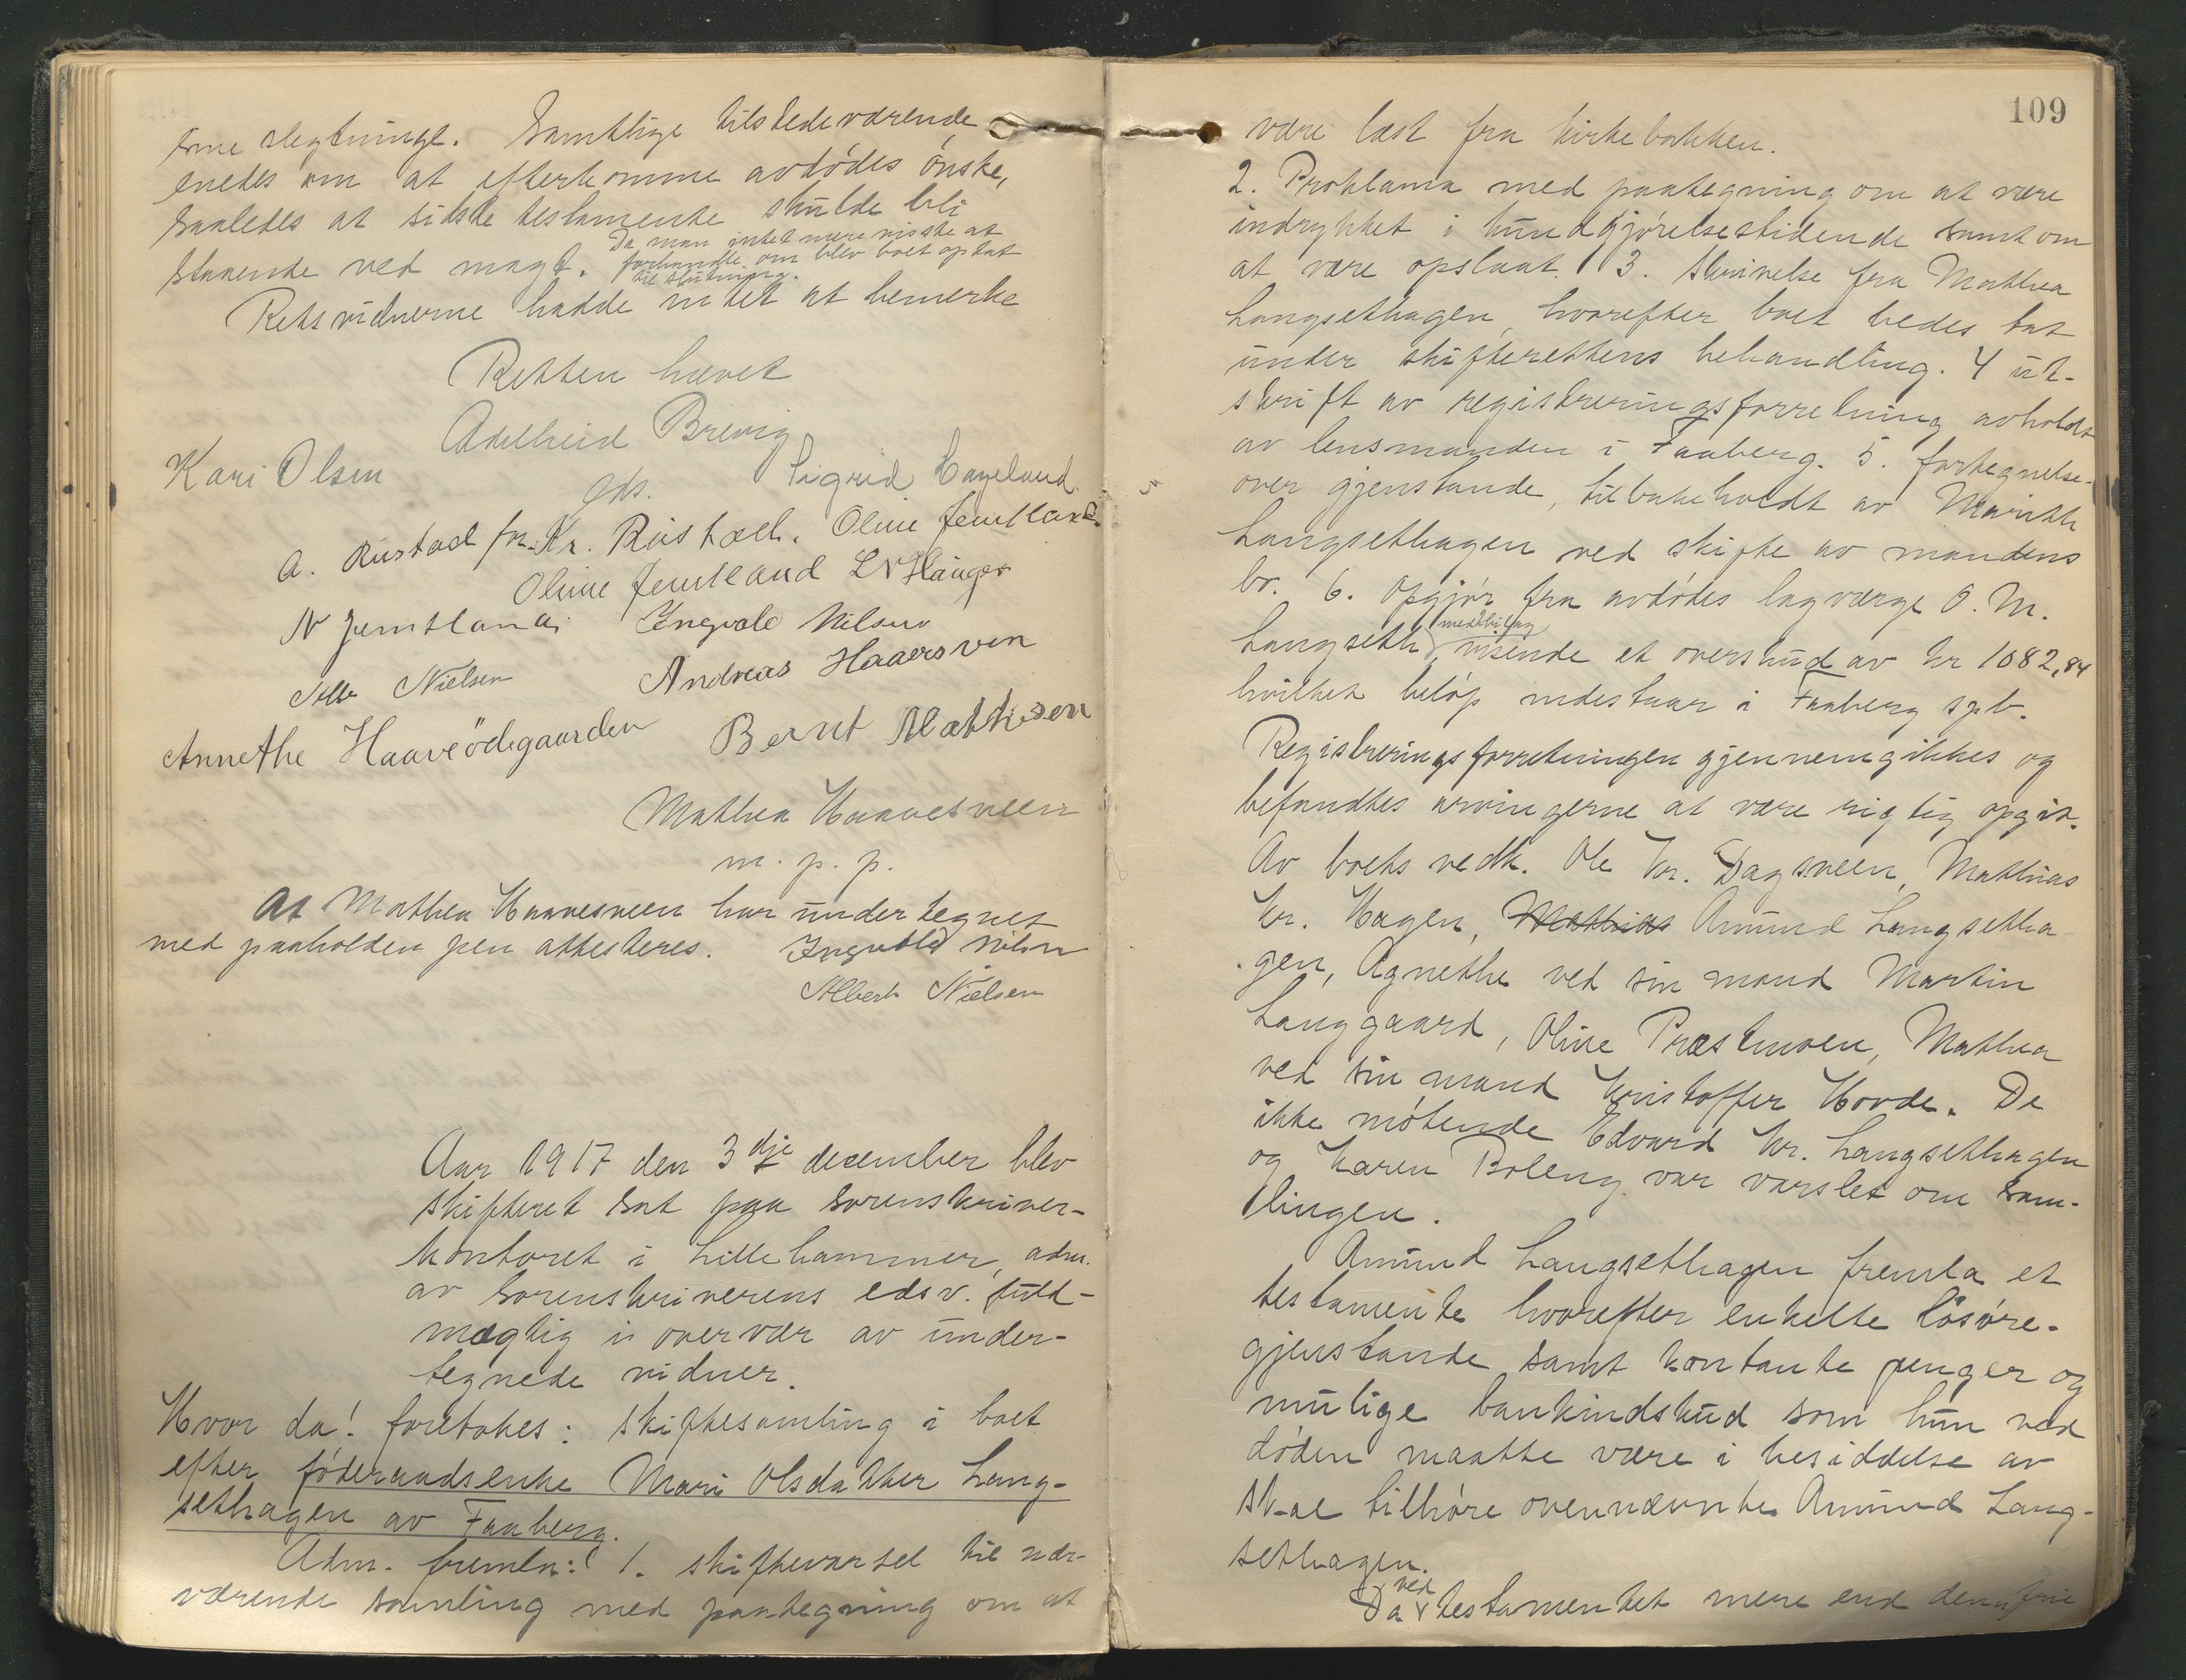 sine slegtninge. Samtlige tilstedeværende
enedes om at efterkomme avdødes ønske,
saaledes at sidste testamente skulde bli
staaende ved magt. Da man intet mere visste at
forhandle om blev boet optat
til slutning.
Retsvidnerne hadde intet at bemerke
Retten hævet
Adelheid Brevig
eds.
Kari Olsen Sigrid Hageland.
A. Rustad for Kr. Rustad. Oline Jemtland
Oline Jemtland
N Jemtland Ingvald Nilsen
Nielsen Andreas Haarsven
Annethe Haaveödegaarden Bernt Mathisen
Mathea Haavesveen
m. p. p.
At Mathea Haavesveen har undertegnet
med paaholden pen attesteres. Ingvald Nilsen
Albert Nielsen
Aar 1917 den 3dje december blev
skifteret sat paa sorenskriver-
kontoret i Lillehammer, adm.
av sorenskriverens edsv. fuld-
mægtig i overvær av under-
tegnede vidner.
Hvor da! foretokes: skiftesamling i boet
efter føderaadsenke Mari Olsdatter Lang-
sethagen av Faaberg.
Adm. fremla: 1. skiftevarsel til nær-
værende samling med paategning om at
109
være læst fra kirkebakken.
2. Proklama med paategning om at være
indrykket i kundgjørelsestidende samt om
at være opslaat. 3. Skrivelse fra Mathea
Langsethagen, hvorefter boet bedes tat
under skifterettens behandling. 4 ut-
skrift av registreringsforretning avholdt
av lensmanden i Faaberg. 5. fortegnelse
over gjenstande, tilbakeholdt av Marith
Langsethagen ved skifte av mandens
bo. 6. Opgjør fra avdødes lagværge O. M.
Langseth med bilag visende et overskud av kr 1082,84
hvilket beløp indestaar i Faaberg spb.
Registreringsforretningen gjennemgikkes og
befandtes arvingerne at være rigtig opgit.
Av boets vedk. Ole Kr. Dagsveen, Mathias
Kr. Hagen, Mathias Amund Langsetha-
gen, Agnethe ved sin mand Martin
Langgaard, Oline Præstmoen, Mathea
ved sin mand Kristoffer Hovde. De
ikke møtende Edvard Kr. Langsethagen
og Karen Boleng var varslet om sam-
lingen.
Amund Langsethagen fremla et
testamente hvorefter enkelte løsøre-
gjenstande samt kontante penger og
mulige bankindskud som hun ved
døden maatte være i besiddelse av
skal tilhøre ovennævnte Amund Lang-
sethagen.
Da ved testamentet mere end den frie